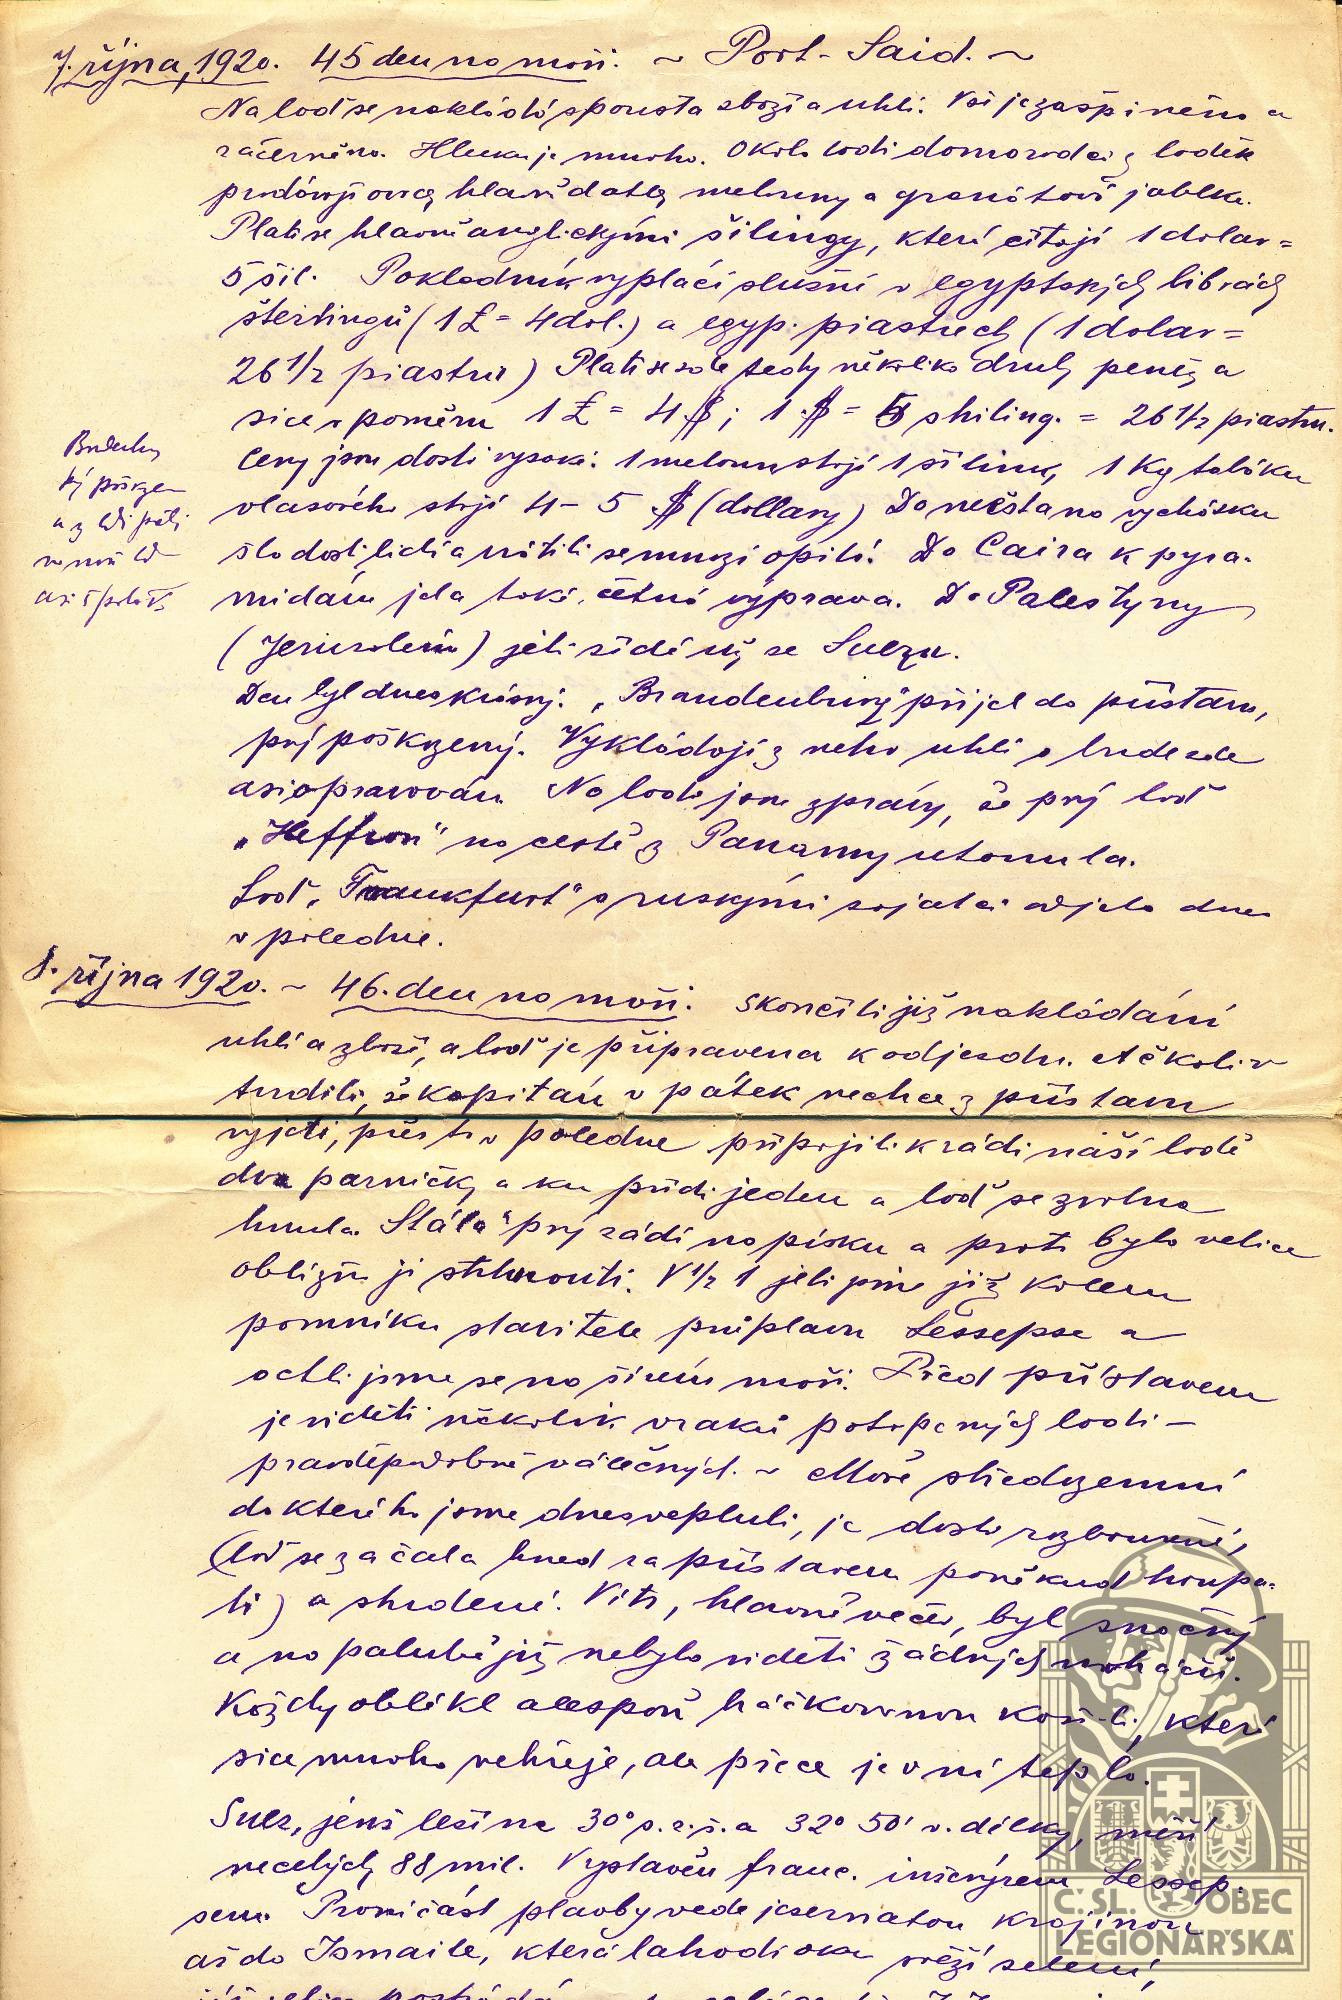 7. října, 1920. 45 den na moři. ~ Port-Said. ~
Na loď se nakládá spousta zboží a uhlí. Vše je zašpiněno a
začerněno. Hluku je mnoho. Okolo lodi domorodci z loděk
prodávají ovoce, hlavně datle, melouny a granátová jablka.
Platí se hlavně anglickými šilingy, které čítají 1 dolar =
5 šil. Pokladník vyplácí služné v egyptských librách
šterlingů (1 £ = 4 dol.) a egyp. piastrech (1 dolar =
26 1/2 piastru) Platí se zde tedy několik druhů peněz a
sice v poměru 1 £ = 4 $; 1 $ = 5 shiling. = 26 1/2 piastru.
Ceny jsou dosti vysoké: 1 meloun stojí 1 šilink, 1 Kg tabáku
vlasového stojí 4 - 5 $ (dollary) Do města na vycházku
šlo dosti lidí a vrátili se mnozí opilí. Do Caira k pyra-
midám jela také četná výprava. Do Palestyny
(Jerusolem) jeli někteří již ze Suezu.
Den byl dnes krásný. „Brandenburg" přijel do přístavu,
prý poškozený. Vykládají z něho uhlí a bude zde
asi opravován. Na lodi jsou zprávy, že prý loď
„Heffron" na cestě z Panamy utonula.
Loď „Frankfurt" s ruskými zajatci odjela dnes
v poledne.
8. října 1920. ~ 46. den na moři. Skončili již nakládání
uhlí a zboží, a loď je připravena k odjezdu. Ačkoliv
tvrdili, že kapitán v pátek nechce z přístavu
vyjeti, přesto v poledne připojili k zádi naší lodě
dva parníčky a ku přídi jeden a loď se zvolna
hnula. Stála prý zádí na písku a proto bylo velice
obtížno ji strhnouti. V 1/2 1 jeli jsme již kolem
pomníku stavitele průplavu Lessepse a
octli jsme se na širém moři. Před přístavem
je viděti několik vraků potopených lodí -
pravděpodobně válečných. ~ Moře středozemní
do kterého jsme dnes vepluli, je dosti rozbouřené,
(loď se začala hned za přístavem poněkud houpa-
ti) a studené. Vítr, hlavně večer, byl značný
a na palubě již nebylo viděti žádných naháčů.
Každý oblékl alespoň háčkovanou košili, která
sice mnoho nehřeje, ale přece je v ní teplo.
Suez, jenž leží na 30° s. z. š. a 32° 50' v. délky, měří
necelých 88 mil. Vystavěn franc. inženýrem Lessep-
sem. První část plavby vede jezernatou krajinou
až do Ismaile, která lahodí oku svěží zelení,
Brandenburg
prý přivezen